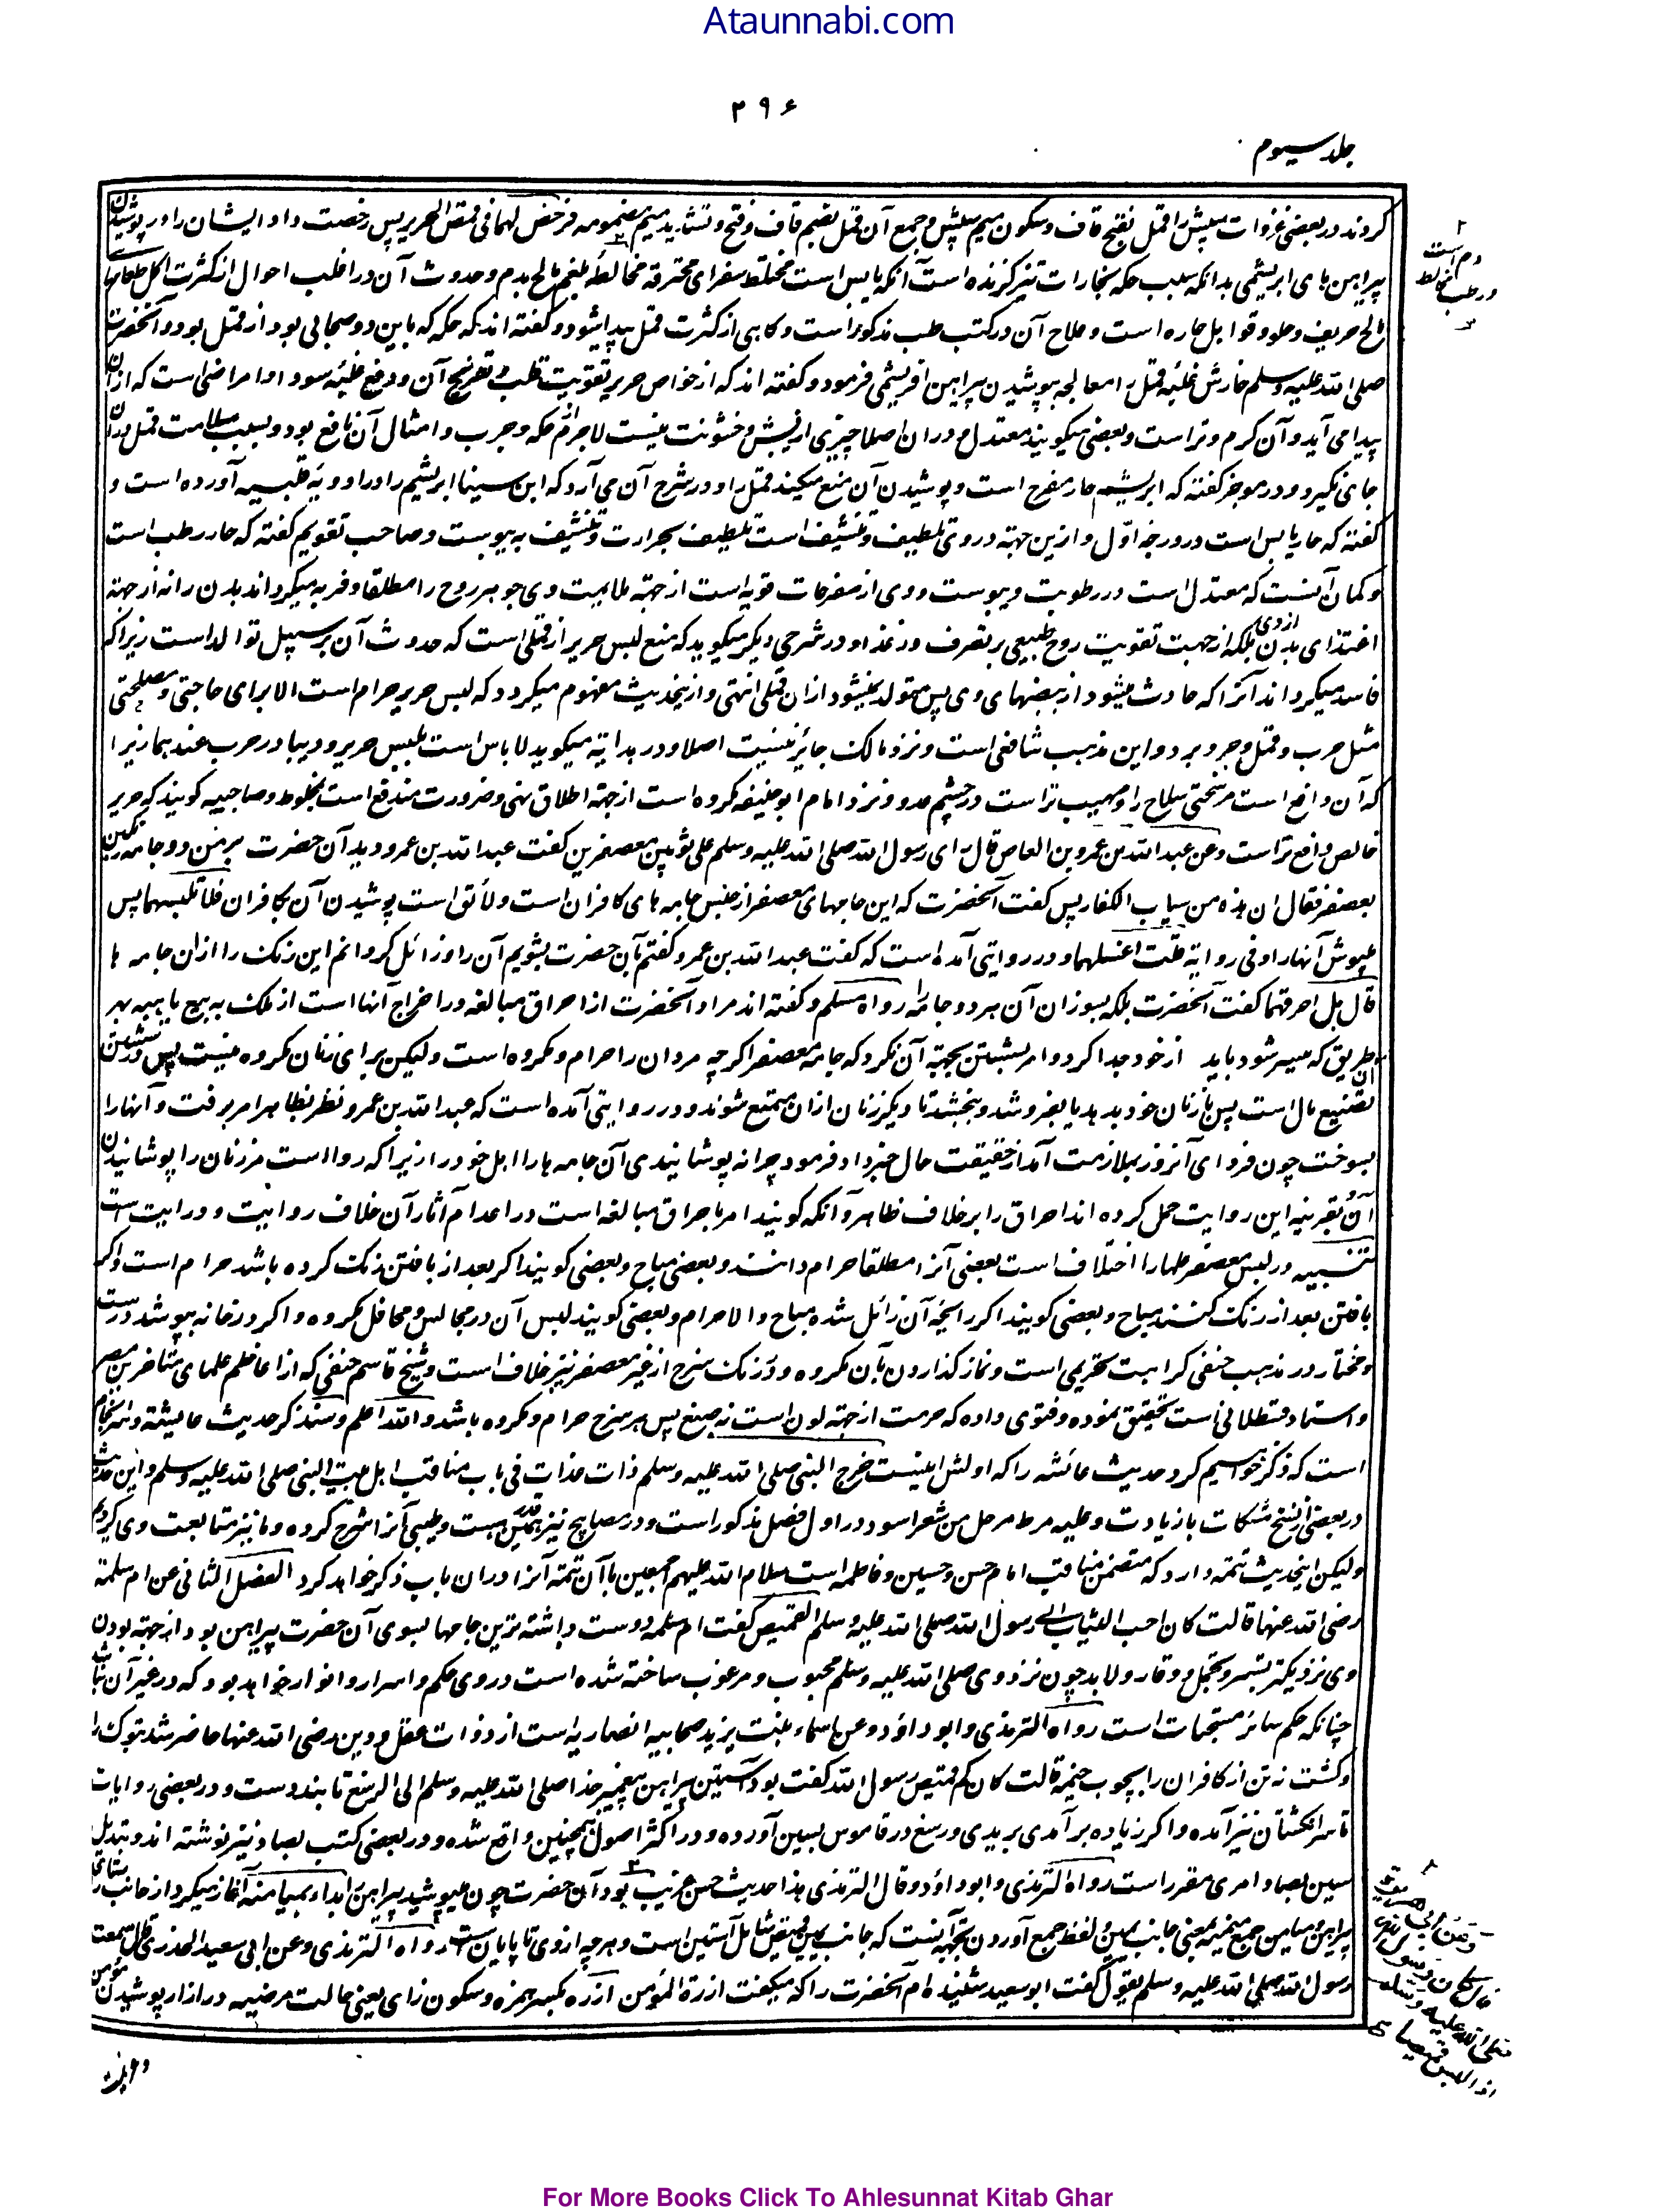 Ataunnabi.com
۲۹۶
جلد سیوم
کردند در بعضی غزوات سپش را قمل بفتح قاف و سکون میم سپش و جمع آن قمل بضم قاف و فتح و تشدید میم مضمومه فرخص لهما فی قمص الحریر پس رخصت داد ایشان را در پوشیدن
پیراهن های ابریشمی بدانکه سبب حکه بخارات تیز گزنده است آنکه یابس است مختلط صفرای محترقه مخالطه بلغم مالح بدم و حدوث آن در اغلب احوال از کثرت اکل طعامها
مالح حریف و حلو و توابل حاره است و علاج آن در کتب طب مذکور است و گاهی از کثرت قمل پیدا میشود و گفته اند که حکه که باین دو صحابی بود از قمل بود و آنحضرت
صلی الله علیه وسلم خارش غلبه قمل را معالجه بپوشیدن پیراهن ابریشمی فرمود و گفته اند که از خواص حریر تقویت قلب و تفریح آن و دفع غلبه سودا و امراضی است که ازان
پیدا می آید و آن گرم و تر است و بعضی میگویند معتدل و دران اصلا چیزی از یبس و خشونت نیست لاجرم حکه و جرب و امثال آن نافع بود و بسبب ملاست قمل دران
جای نگیرد و در موجز گفته که ابریشم حار مفرح است و پوشیدن آن منع میکند قمل را و در شرح آن می آرد که ابن سینا ابریشم را در ادویه قلبیه آورده است و
گفته که حار یابس است در درجه اول و ازین جهة در وی تلطیف و تنشیف است تلطیف بحرارت و تنشیف به یبوست و صاحب تقویم گفته که حار رطب است
و گمان آنست که معتدل است در رطوبت و یبوست و وی از مفرحات قویه است از جهة ملایمت وی جوهر روح را مطلقا و فربه میگرداند بدن را نه از جهة
اغتذای بدن ازوی بلکه از جهت تقویت روح طبیعی بر تصرف در غذا و در شرحی دیگر میگوید که منع لبس حریر از قملی است که حدوث آن بر سبیل توالد است زیرا که
فاسد میگرداند آنرا که حادث میشود از بیضهای وی پس متولد نمیشود ازان قملی انتهی و ازینحدیث مفهوم میگردد که لبس حریر حرام است الا برای حاجتی و مصلحتی
مثل حرب و قمل و جرب و برد و این مذهب شافعی است و نزد مالک جائز نیست اصلا و در هدایه میگوید لا باس است بلبس حریر و دیبا در حرب عندهما زیرا
که آن دافع است مر سختی سلاح را و مهیب تر است در چشم عدو و نزد امام ابو حنیفه مکروه است از جهة اطلاق نهی و ضرورت مندفع است بمخلوط و صاحبیه گویند که حریر
خالص دافع تر است وعن عبدالله بن عمرو بن العاص قال رای رسول الله صلی الله علیه وسلم علی ثوبین معصفرین گفت عبدالله بن عمرو دید آن حضرت بر من دو جامه رنگین
بعصفر فقال ان هذه من ثیاب الکفار پس گفت آنحضرت که این جامهای معصفر از جنس جامه های کافران است و لائق است پوشیدن آن بکافران فلا تلبسهما پس
مپوش آنها را و فی روایة قلت اغسلهما و در روایتی آمده است که گفت عبدالله بن عمرو گفتم بآن حضرت بشویم آن را و زائل گردانم این رنگ را ازان جامه ها
قال بل احرقهما گفت آنحضرت بلکه بسوزان آن هر دو جامه را رواه مسلم و گفته اند مراد آنحضرت از احراق مبالغه در اخراج آنها است از ملک به بیع یا هبه بهر
طریق که میسر شود باید از خود جدا کرد و امر بشستن بجهة آن نکرد که جامه معصفر اگرچه مردان را حرام و مکروه است ولیکن برای زنان مکروه نیست پس در شستن
آن تضییع مال است پس یا زنان خود بدهد یا بفروشد و ببخشد تا دیگر زنان ازان متمتع شوند و در روایتی آمده است که عبدالله بن عمرو نظر بظاهر امر برفت و آنها را
بسوخت چون فردای آنروز بملازمت آمد از حقیقت حال خبر داد فرمود چرا نه پوشانیدی آن جامه ها را اهل خود را زیرا که روا است مر زنان را پوشانیدن
آن و بقرینه این روایت حمل کرده اند احراق را بر خلاف ظاهر و آنکه گویند امر باحراق مبالغه است در اعدام آثار آن خلاف روایت و درایت است
تنبیه در لبس معصفر علما را اختلاف است بعضی آنرا مطلقا حرام دانند و بعضی مباح و بعضی گویند اگر بعد از بافتن رنگ کرده باشد حرام است و اگر
بافتن بعد از رنگ کنند مباح و بعضی گویند اگر رائحه آن زائل شده مباح والا حرام و بعضی گویند لبس آن در مجالس و محافل مکروه و اگر در خانه بپوشد درست
و مختار در مذهب حنفی کراهت تحریمی است و نماز گذاردن بآن مکروه و در رنگ سرخ از غیر معصفر نیز خلاف است و شیخ قاسم حنفی که از اعاظم علمای متاخرین مصر
و استاد قسطلانی است تحقیق نموده و فتوی داده که حرمت از جهة لون است نه صبغ پس هر سرخ حرام و مکروه باشد والله اعلم و سنذکر حدیث عائشة و این جا
است که ذکر خواهیم کرد حدیث عائشه را که اولش اینست خرج النبی صلی الله علیه وسلم ذات غداة فی باب مناقب اهل بیت النبی صلی الله علیه وسلم و این حدیث
در بعضی از نسخ مشکات با زیادت و علیه مرط مرحل من شعر اسود در اول فصل مذکور است و در مصابیح نیز همچنین هست و طیبی آنرا شرح کرده و ما نیز متابعت وی کردیم
ولیکن اینحدیث تتمه دارد که متضمن مناقب امام حسن و حسین و فاطمه است سلام الله علیهم اجمعین با آن تتمه آنرا دران باب ذکر خواهد کرد الفصل الثانی عن ام سلمة
رضی الله عنها قالت کان احب الثیاب الی رسول الله صلی الله علیه وسلم القمیص گفت ام سلمه دوست داشته ترین جامها بسوی آن حضرت پیراهن بود از جهة بودن
وی نزدیکتر بتستر و تجمل و وقار و لابد چون نزد وی صلی الله علیه وسلم محبوب و مرغوب ساخته شده است در وی حکم و اسرار و انوار خواهد بود که در غیر آن نباشد
چنانکه حکم سائر مستحبات است رواه الترمذی و ابو داؤد وعن اسماء بنت یزید صحابیه انصاریه است از ذوات عقل و دین رضی الله عنها حاضر شد یرموک را
و کشت نه تن از کافران را بچوب خیمه قالت کان کم قمیص رسول الله گفت بود آستین پیراهن پیغمبر خدا صلی الله علیه وسلم الی الرسغ تا بند دست و در بعضی روایات
تا سر انگشتان نیز آمده و اگر زیاده بر آمدی بریدی و رسغ در قاموس بسین آورده و در اکثر اصول همچنین واقع شده و در بعضی کتب بصاد نیز نوشته اند و تبدیل
سین بصاد امری مقرر است رواه الترمذی و ابو داؤد و قال الترمذی هذا حدیث حسن غریب بود آن حضرت چون میپوشید پیراهن ابدا بمیامنه آغاز میکرد از جانب راستای
پیراهن و میامن جمع میمنه بمعنی جانب یمین و لفظ جمع آوردن بجهة آنست که جانب یمین قمیص شامل آستین است و هرچه ازوی تا پایان است رواه الترمذی وعن ابی سعید الخدری قال سمعت
رسول الله صلی الله علیه وسلم یقول گفت ابو سعید شنیده ام آنحضرت را که میگفت ازرة المؤمن ازره بکسر همزه و سکون زای یعنی حالت مرضیه در ازار پوشیدن مؤمن
۲
دم است
در طب مخالط
۲
وعن ابی هریرة
قال کان رسول الله
صلی الله علیه وسلم
اذا لبس قمیصا
For More Books Click To Ahlesunnat Kitab Ghar